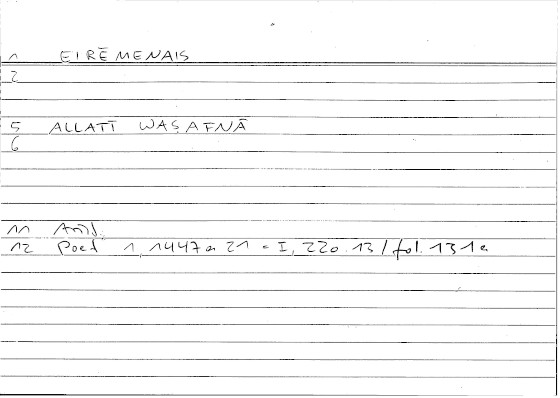 1 EIRĒMENAIS
2
5 ALLATĪ WAṢAFNĀ
6
11 Arist.
12 Poet 1, 1447a 21 = I, 220.13 / fol. 131a